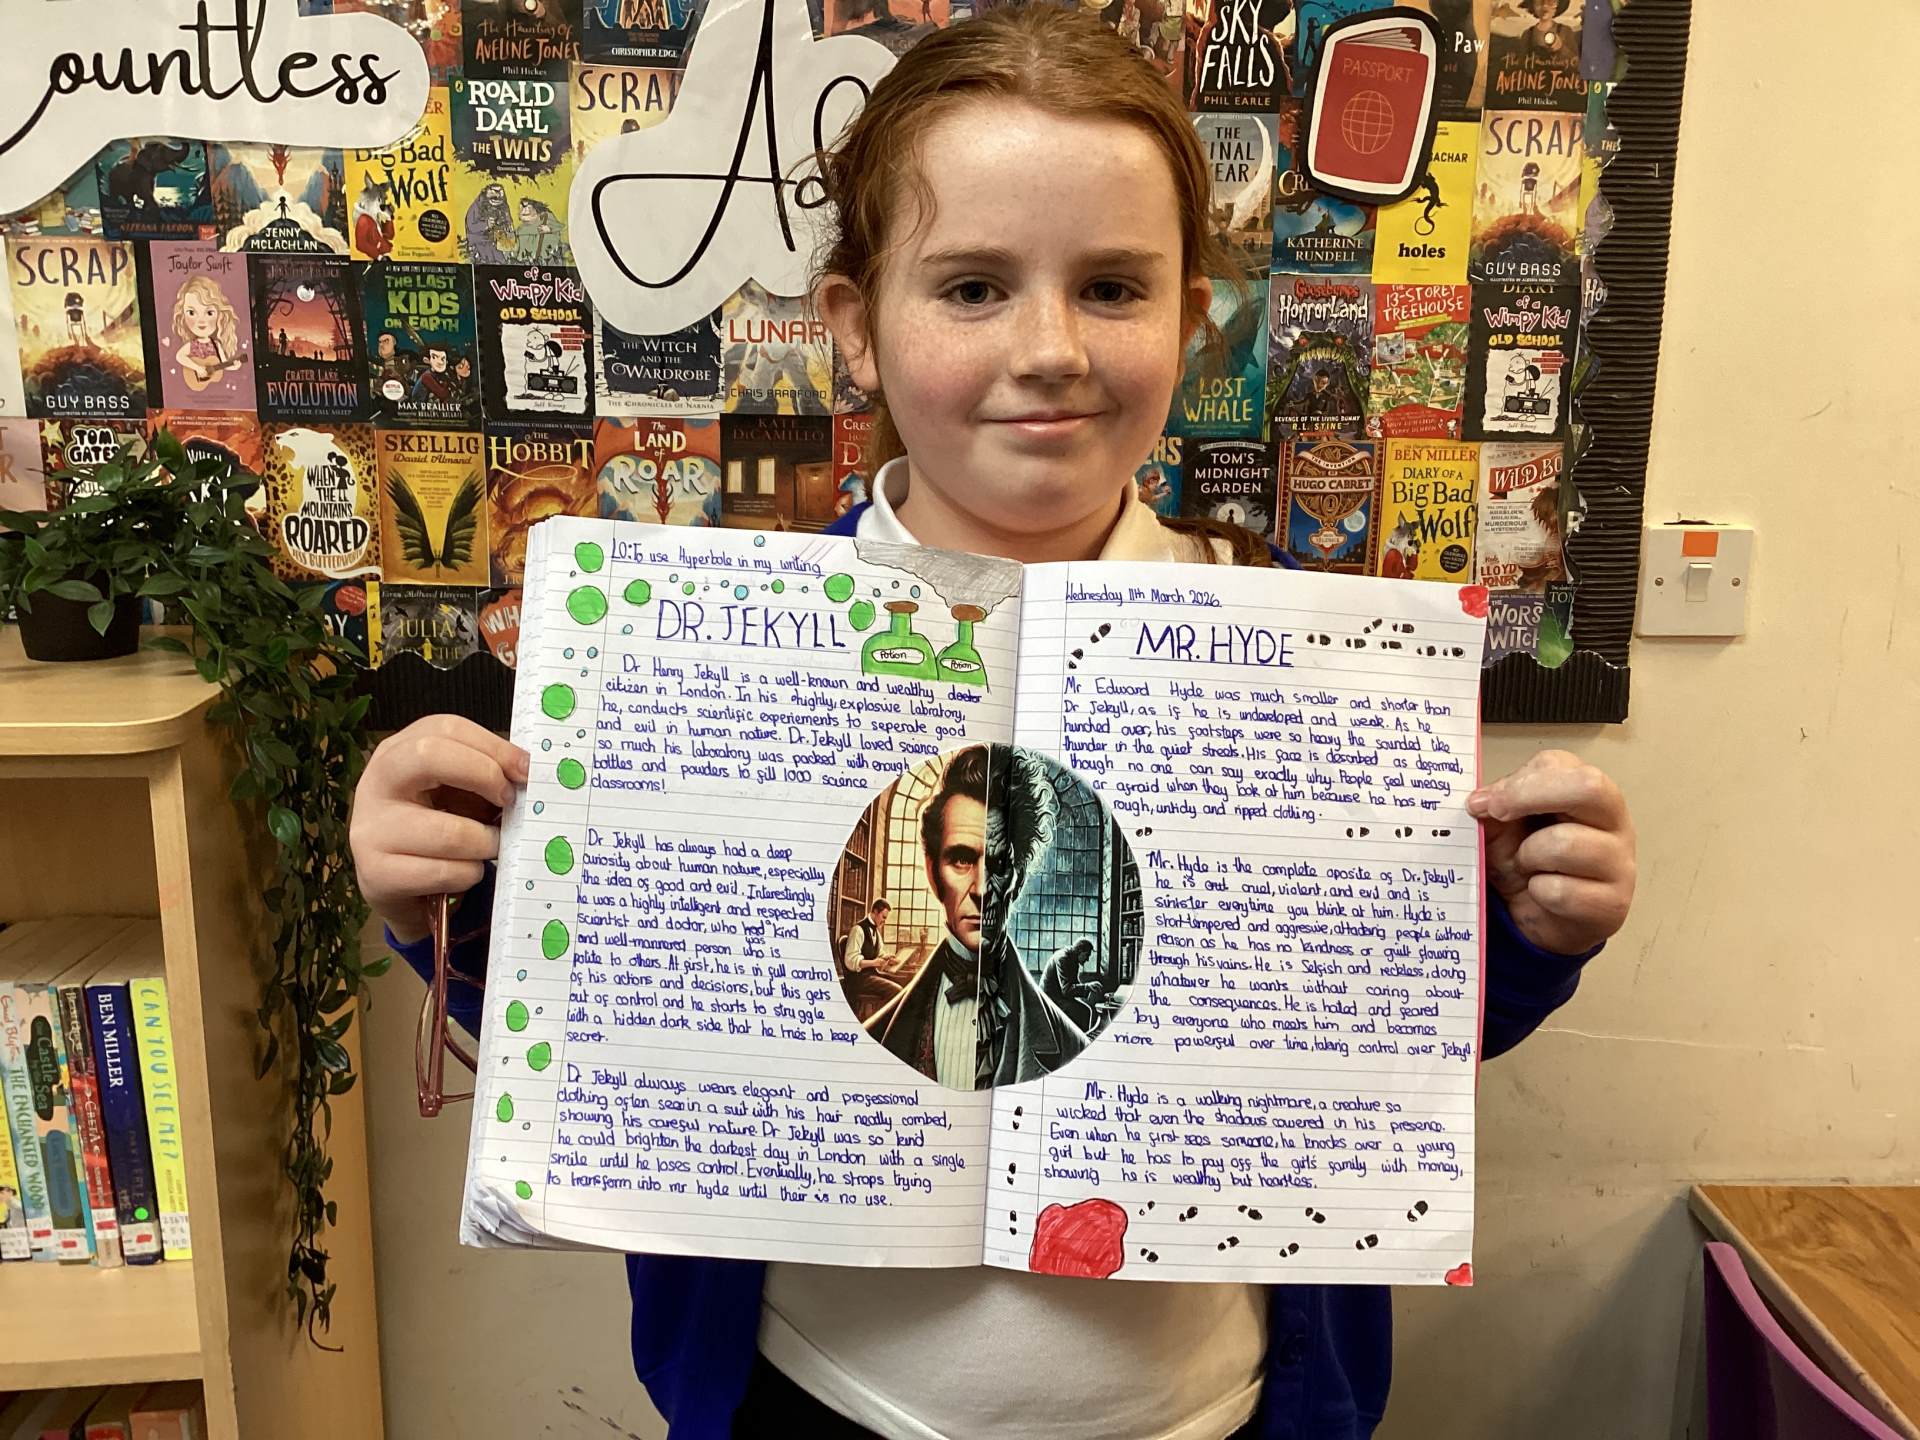 ountless
Ad
The Haunting of
AVELINE JONES
Phil Hickes
CHRISTOPHER EDGE
SCRAP
ROALD
DAHL
THE TWITS
Big Bad
Wolf
JENNY
MCLACHLAN
SCRAP
GUY BASS
Taylor Swift
CRATER LAKE
EVOLUTION
DON'T EVER FALL ASLEEP
THE LAST
KIDS
ON EARTH
MAX BRALLIER
of a
Wimpy Kid
OLD SCHOOL
Jeff Kinney
THE WITCH
AND THE
WARDROBE
THE CHRONICLES OF NARNIA
LUNAR
CHRIS BRADFORD
TOM
GATES
WHEN
THE
MOUNTAINS
ROARED
JESS BUTTERWORTH
SKELLIG
David Almond
THE
HOBBIT
The
LAND
of
ROAR
KATE
DiCAMILLO
JULIA
SKY
FALLS
PHIL EARLE
PASSPORT
Paw
The Haunting of
AVELINE JONES
Phil Hickes
THE
FINAL
YEAR
KATHERINE
RUNDELL
SACHAR
holes
SCRAP
GUY BASS
LOST
WHALE
Goosebumps
HorrorLand
REVENGE OF THE LIVING DUMMY
R.L. STINE
THE
13-STOREY
TREEHOUSE
DIARY
of a
Wimpy Kid
OLD SCHOOL
Jeff Kinney
TOM'S
MIDNIGHT
GARDEN
THE INVENTION OF
HUGO CABRET
BEN MILLER
DIARY OF A
Big Bad
Wolf
WANTED
WILD BO
LLOYD
JONES
THE
WORS
WITCH
THE ENCHANTED WOOD
BEN MILLER
CAN YOU SEE ME?
LO: To use Hyperbole in my writing
DR. JEKYLL
Potion
Potion
Dr Henry Jekyll is a well-known and wealthy doctor
citizen in London. In his highly, explosive labratory,
he, conducts scientific experiements to seperate good
and evil in human nature. Dr. Jekyll loved science
so much his laboratory was packed with enough
bottles and powders to fill 1000 science
classrooms!
Dr Jekyll has always had a deep
curiosity about human nature, especially
the idea of good and evil. Interestingly
he was a highly intelligent and respected
scientist and doctor, who had a kind
was
and well-mannered person who is
polite to others. At first, he is in full control
of his actions and decisions, but this gets
out of control and he starts to struggle
with a hidden dark side that he tries to keep
secret.
Dr Jekyll always wears elegant and professional
clothing often seen in a suit with his hair neatly combed,
showing his careful nature. Dr Jekyll was so kind
he could brighten the darkest day in London with a single
smile until he loses control. Eventually, he strops trying
to transform into mr hyde until their is no use.
Wednesday 11th March 2026
MR. HYDE
Mr Edward Hyde was much smaller and shorter than
Dr Jekyll, as if he is undeveloped and weak. As he
hunched over, his footsteps were so heavy the sounded like
thunder in the quiet streets. His face is described as deformed,
though no one can say exactly why. People feel uneasy
or afraid when they look at him because he has
rough, untidy and ripped clothing.
Mr. Hyde is the complete oposite of Dr. Jekyll-
he is cruel, violent, and evil and is
sinister everytime you blink at him. Hyde is
short-tempered and aggresive, attacking people without
reason as he has no kindness or guilt flowing
through his vains. He is Selfish and reckless, doing
whatever he wants without caring about
the consequences. He is hated and feared
by everyone who meets him and becomes
more powerful over time, taking control over Jekyll.
Mr. Hyde is a walking nightmare, a creature so
wicked that even the shadows cowered in his presence.
Even when he first sees someone, he knocks over a young
girl but he has to pay off the girl's family with money,
showing he is wealthy but heartless.